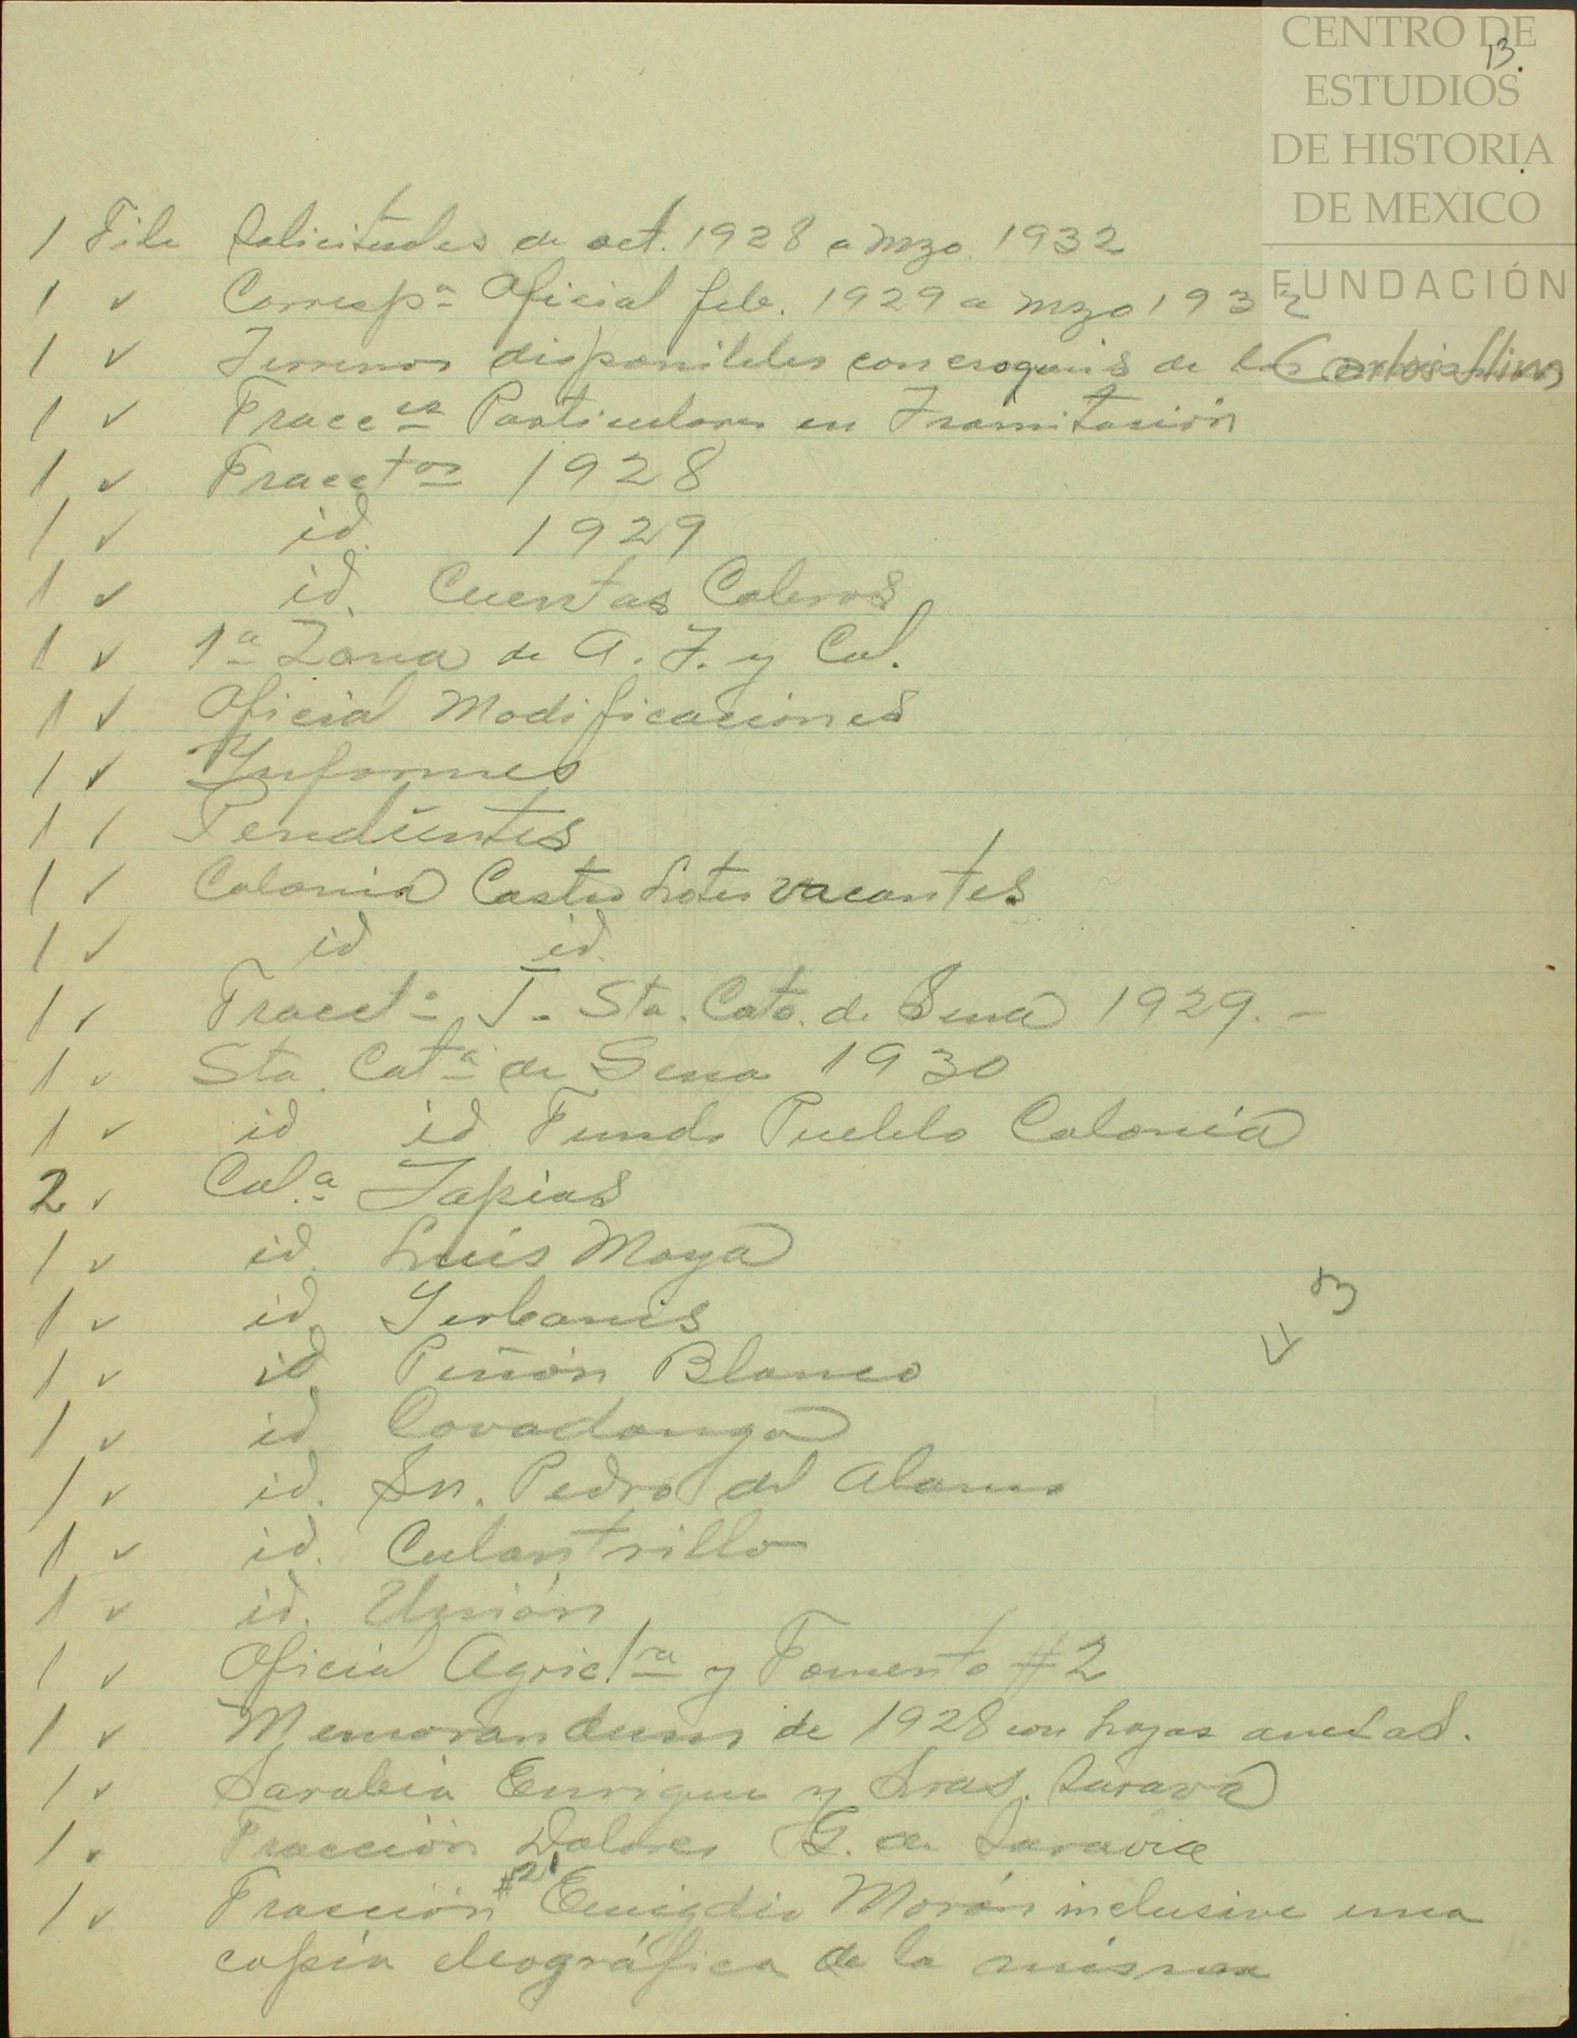 CENTRO DE
13.
ESTUDIOS
DE HISTORIA
DE MEXICO
FUNDACIÓN
Carlos Slim
1 File Solicitudes de oct. 1928 a mzo. 1932
1 ✓ Correspª Oficial feb. 1929 a mzo 1932
1 ✓ Terrenos disponibles con croquis de los
1 ✓ Fracces Particulares en Tramitación
1 ✓ Fracctos 1928
1 ✓ id. 1929
1 ✓ id. Cuentas Cobros
1 ✓ 1ª Zona de A. F. y Col.
1 ✓ Oficial Modificaciones
1 ✓ Informes
1 ✓ Pendientes
1 ✓ Colonia Castro Lotes vacantes
1 ✓ id id.
1 ✓ Fracctº J. Sta. Cata. de Sena 1929. -
1 ✓ Sta. Catª de Sena 1930
1 ✓ id id Fundo Pueblo Colonia
2 ✓ Col.ª Tapias
1 ✓ id. Luis Moya
1 ✓ id. Yerbanis
1 ✓ id. Peñón Blanco
1 ✓ id Covadonga
1 ✓ id. Sn. Pedro del Alamo
1 ✓ id. Culantrillo
1 ✓ id. Unión
1 ✓ Oficial Agriclra y Fomento #2
1 ✓ Memorandums de 1928 con hojas anexas.
1 ✓ Sarabia Enrique y Sras. Saravia
1 ✓ Fracción Dolores G. de Saravia
1 ✓ Fracción #21 Emigdio Morán inclusive una
copia eleográfica de la misma